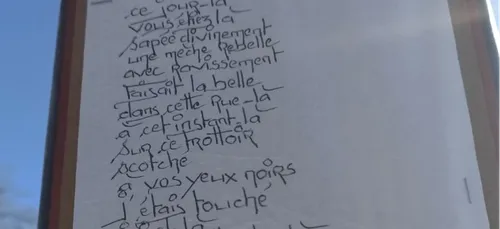 ce jour-là
vous étiez là
sapée divinement
une mèche rebelle
avec ravissement
faisait la belle
dans cette rue-là
à cet instant là
sur ce trottoir
scotché
à vos yeux noirs
j'étais touché